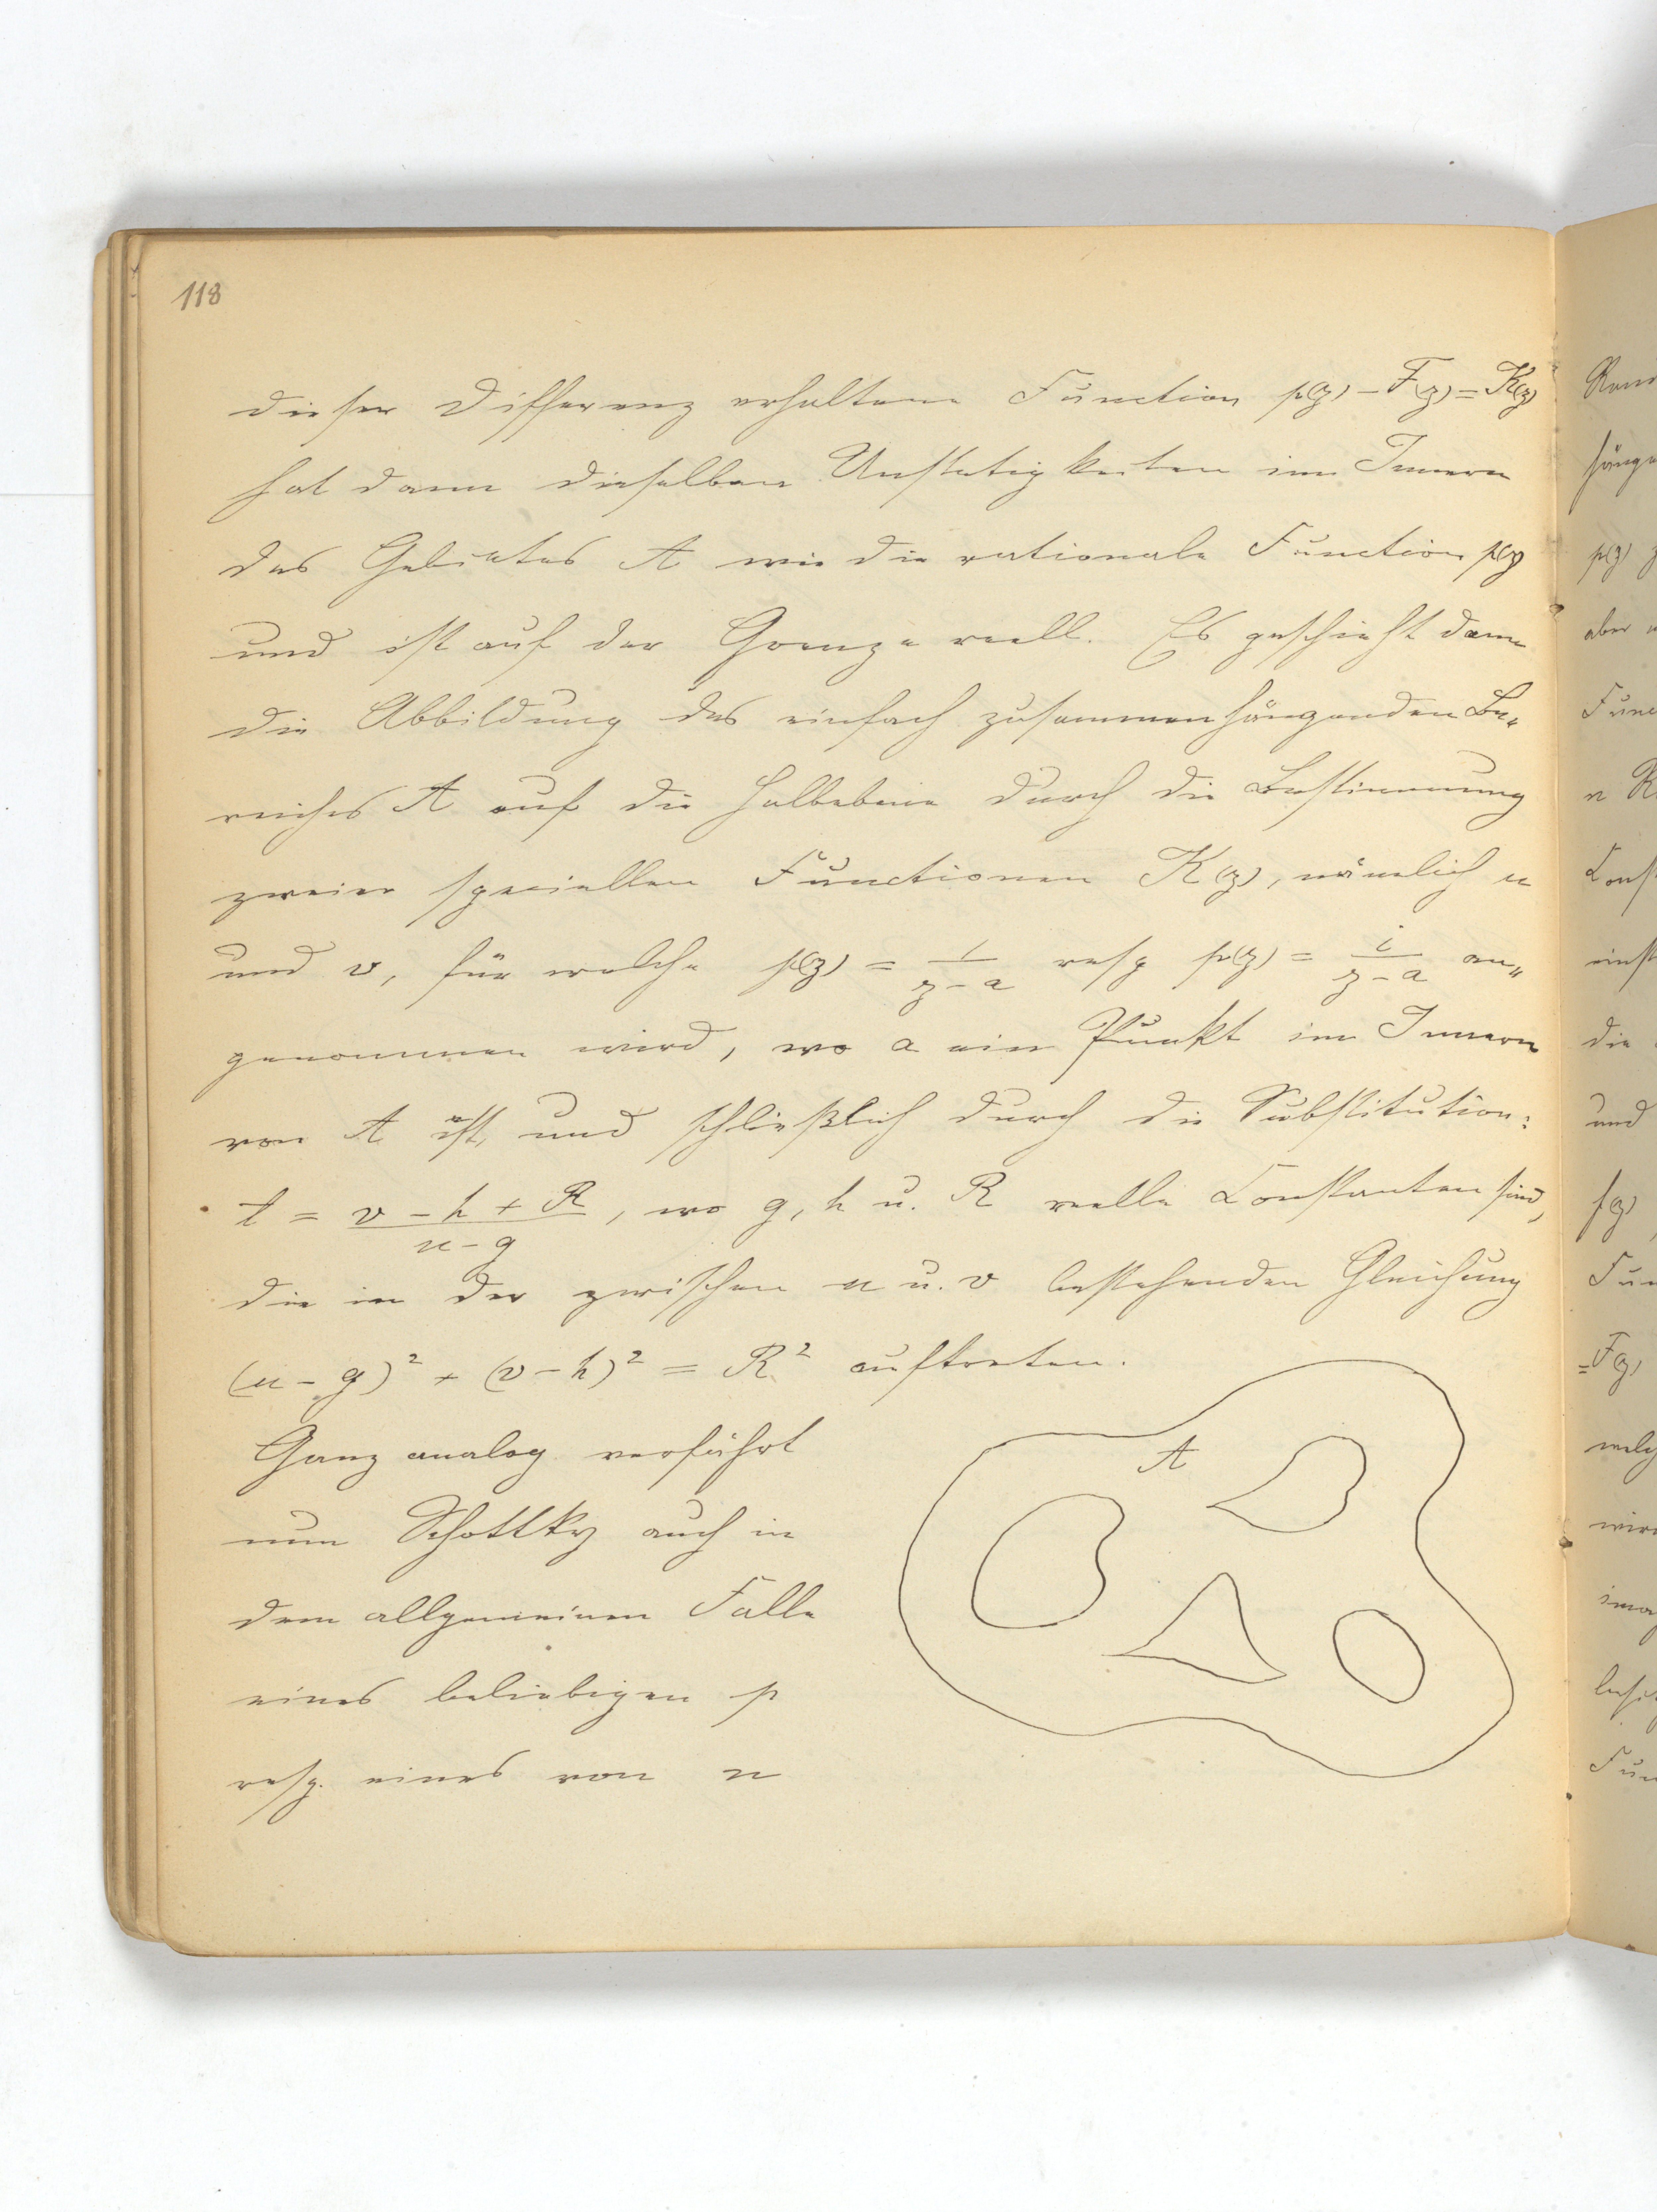 118
dieser Differenz erhaltene Function p(z) – F(z) = K(z)
hat dann dieselben Unstetigkeiten im Innern
des Gebietes A wie die rationale Function p(z)
und ist auf der Grenze reell. Es geschieht dann
die Abbildung des einfach zusammenhängenden Be„
reiches A auf die Halbebene durch die Bestimmung
zweier speciellen Functionen K(z), nämlich u
und v, für welche p(z) = 1/(z – a) resp p(z) = i/(z – a) an„
genommen wird, wo a ein Punkt im Innern
von A ist, und schließlich durch die Substitution:
t = (v – h + R)/(u – g), wo g, h u. R reelle Constanten sind,
die in der zwischen u u. v bestehenden Gleichung
(u – g)² + (v – h)² = R² auftreten.
Ganz analog verfährt
nun Schottky auch in
dem allgemeinen Falle
eines beliebigen p
resp. eines von n
A
aber
p(z)
Func
die
und
f(z)
= F(z)